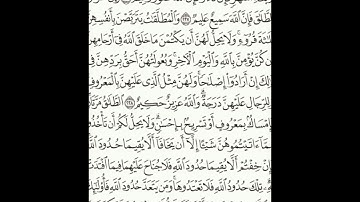 الطَّلَٰقَ فَإِنَّ ٱللَّهَ سَمِيعٌ عَلِيمٌ ٢٢٧ وَٱلْمُطَلَّقَٰتُ يَتَرَبَّصْنَ بِأَنفُسِهِنَّ
ثَلَٰثَةَ قُرُوٓءٍ وَلَا يَحِلُّ لَهُنَّ أَن يَكْتُمْنَ مَا خَلَقَ ٱللَّهُ فِىٓ أَرْحَامِهِنَّ
إِن كُنَّ يُؤْمِنَّ بِٱللَّهِ وَٱلْيَوْمِ ٱلْءَاخِرِ وَبُعُولَتُهُنَّ أَحَقُّ بِرَدِّهِنَّ فِى
ذَٰلِكَ إِنْ أَرَادُوٓا۟ إِصْلَٰحًا وَلَهُنَّ مِثْلُ ٱلَّذِى عَلَيْهِنَّ بِٱلْمَعْرُوفِ
وَلِلرِّجَالِ عَلَيْهِنَّ دَرَجَةٌ وَٱللَّهُ عَزِيزٌ حَكِيمٌ ٢٢٨ ٱلطَّلَٰقُ مَرَّتَانِ
فَإِمْسَاكٌۢ بِمَعْرُوفٍ أَوْ تَسْرِيحٌۢ بِإِحْسَٰنٍ وَلَا يَحِلُّ لَكُمْ أَن تَأْخُذُوا۟
مِمَّآ ءَاتَيْتُمُوهُنَّ شَيْـًٔا إِلَّآ أَن يَخَافَآ أَلَّا يُقِيمَا حُدُودَ ٱللَّهِ
فَإِنْ خِفْتُمْ أَلَّا يُقِيمَا حُدُودَ ٱللَّهِ فَلَا جُنَاحَ عَلَيْهِمَا فِيمَا ٱفْتَدَتْ
بِهِۦ تِلْكَ حُدُودُ ٱللَّهِ فَلَا تَعْتَدُوهَا وَمَن يَتَعَدَّ حُدُودَ ٱللَّهِ فَأُو۟لَٰٓئِكَ